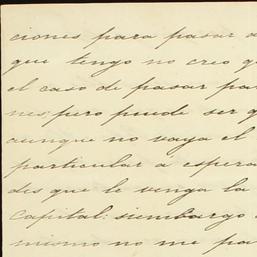 ciones para pasar a
que tengo no creo q
el caso de pasar par
nes, pero puede ser q
aunque no vaya el
particular á espera
des que le venga la
Capital: sinembargo
mismo no me pa